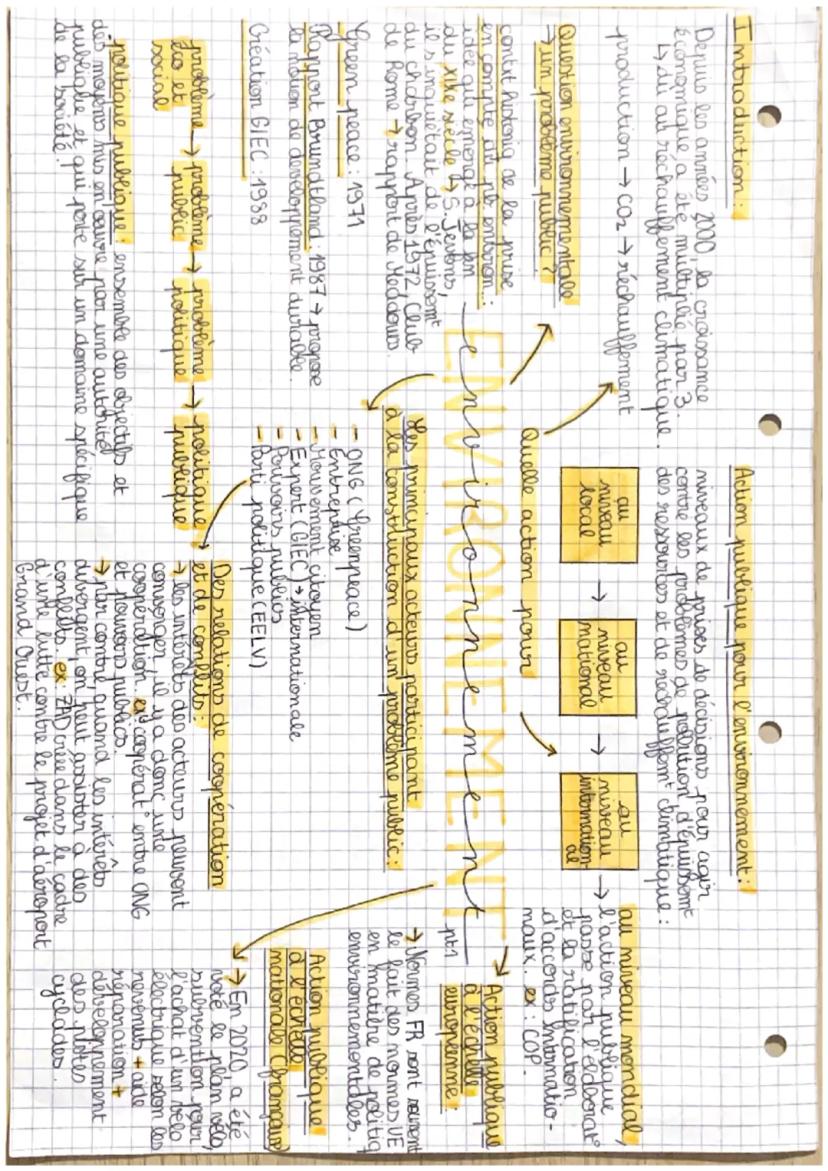 Introduction :
Depuis les années 2000, la croissance
économique a été multiplié par 3.
↳ dû au réchauffement climatique.
production → CO2 → réchauffement
Question environnementale
→ un problème public ?
contxt historiq de la prise
en compte du pb environ :
idée qui émerge à la fin
du XIXe siècle ↳ S. Jevons,
il s'inquiétait de l'épuissemt
du charbon. Après 1972 Club
de Rome → rapport de Meadows.
Green peace : 1971
Rapport Brundtland : 1987 → propose
la notion de développement durable.
Création GIEC : 1988
problème → problème → problème → politique
éco et public politique publique
social
politique publique : ensemble des objectifs et
des moyens mis en œuvre par une autorité
publique et qui porte sur un domaine spécifique
de la société.
ENVIRONNEMENT
environnement
pt1
Quelle action pour
Action publique pour l'environnement :
niveaux de prises de décisions pour agir
contre les problèmes de pollution d'épuissemt
des ressources et de réchauffemt climatique :
au
niveau
local
→
au
niveau
national
→
au
niveau
internation-
al
→ au niveau mondial,
l'action publique
passe par l'élaborat°
et la ratification
d'accords internatio-
naux. ex : COP.
Les principaux acteurs participant
à la construction d'un problème public :
- ONG (Greenpeace)
- Entreprise
- Mouvement citoyen
- Expert (GIEC) → internationale
- Pouvoirs publics
- Parti politique (EELV)
Des relations de coopération
et de conflits :
→ les intérêts des acteurs peuvent
converger, il y a donc une
coopération. ex : coopérat° entre ONG
et pouvoirs publics.
→ par contre, quand les intérêts
divergent, on peut assister à des
conflits. ex : ZAD créée dans le cadre
d'une lutte contre le projet d'aéroport
Grand Ouest.
Action publique
à l'échelle
européenne :
→ Normes FR sont souvent
le fait des normes UE
en matière de politiq
environnementales.
Action publique
à l'échelle
nationale (française)
→ En 2020, a été
voté le plan vélo,
subvention pour
l'achat d'un vélo
électrique selon les
revenus + aide
réparation +
développement
des pistes
cyclables.